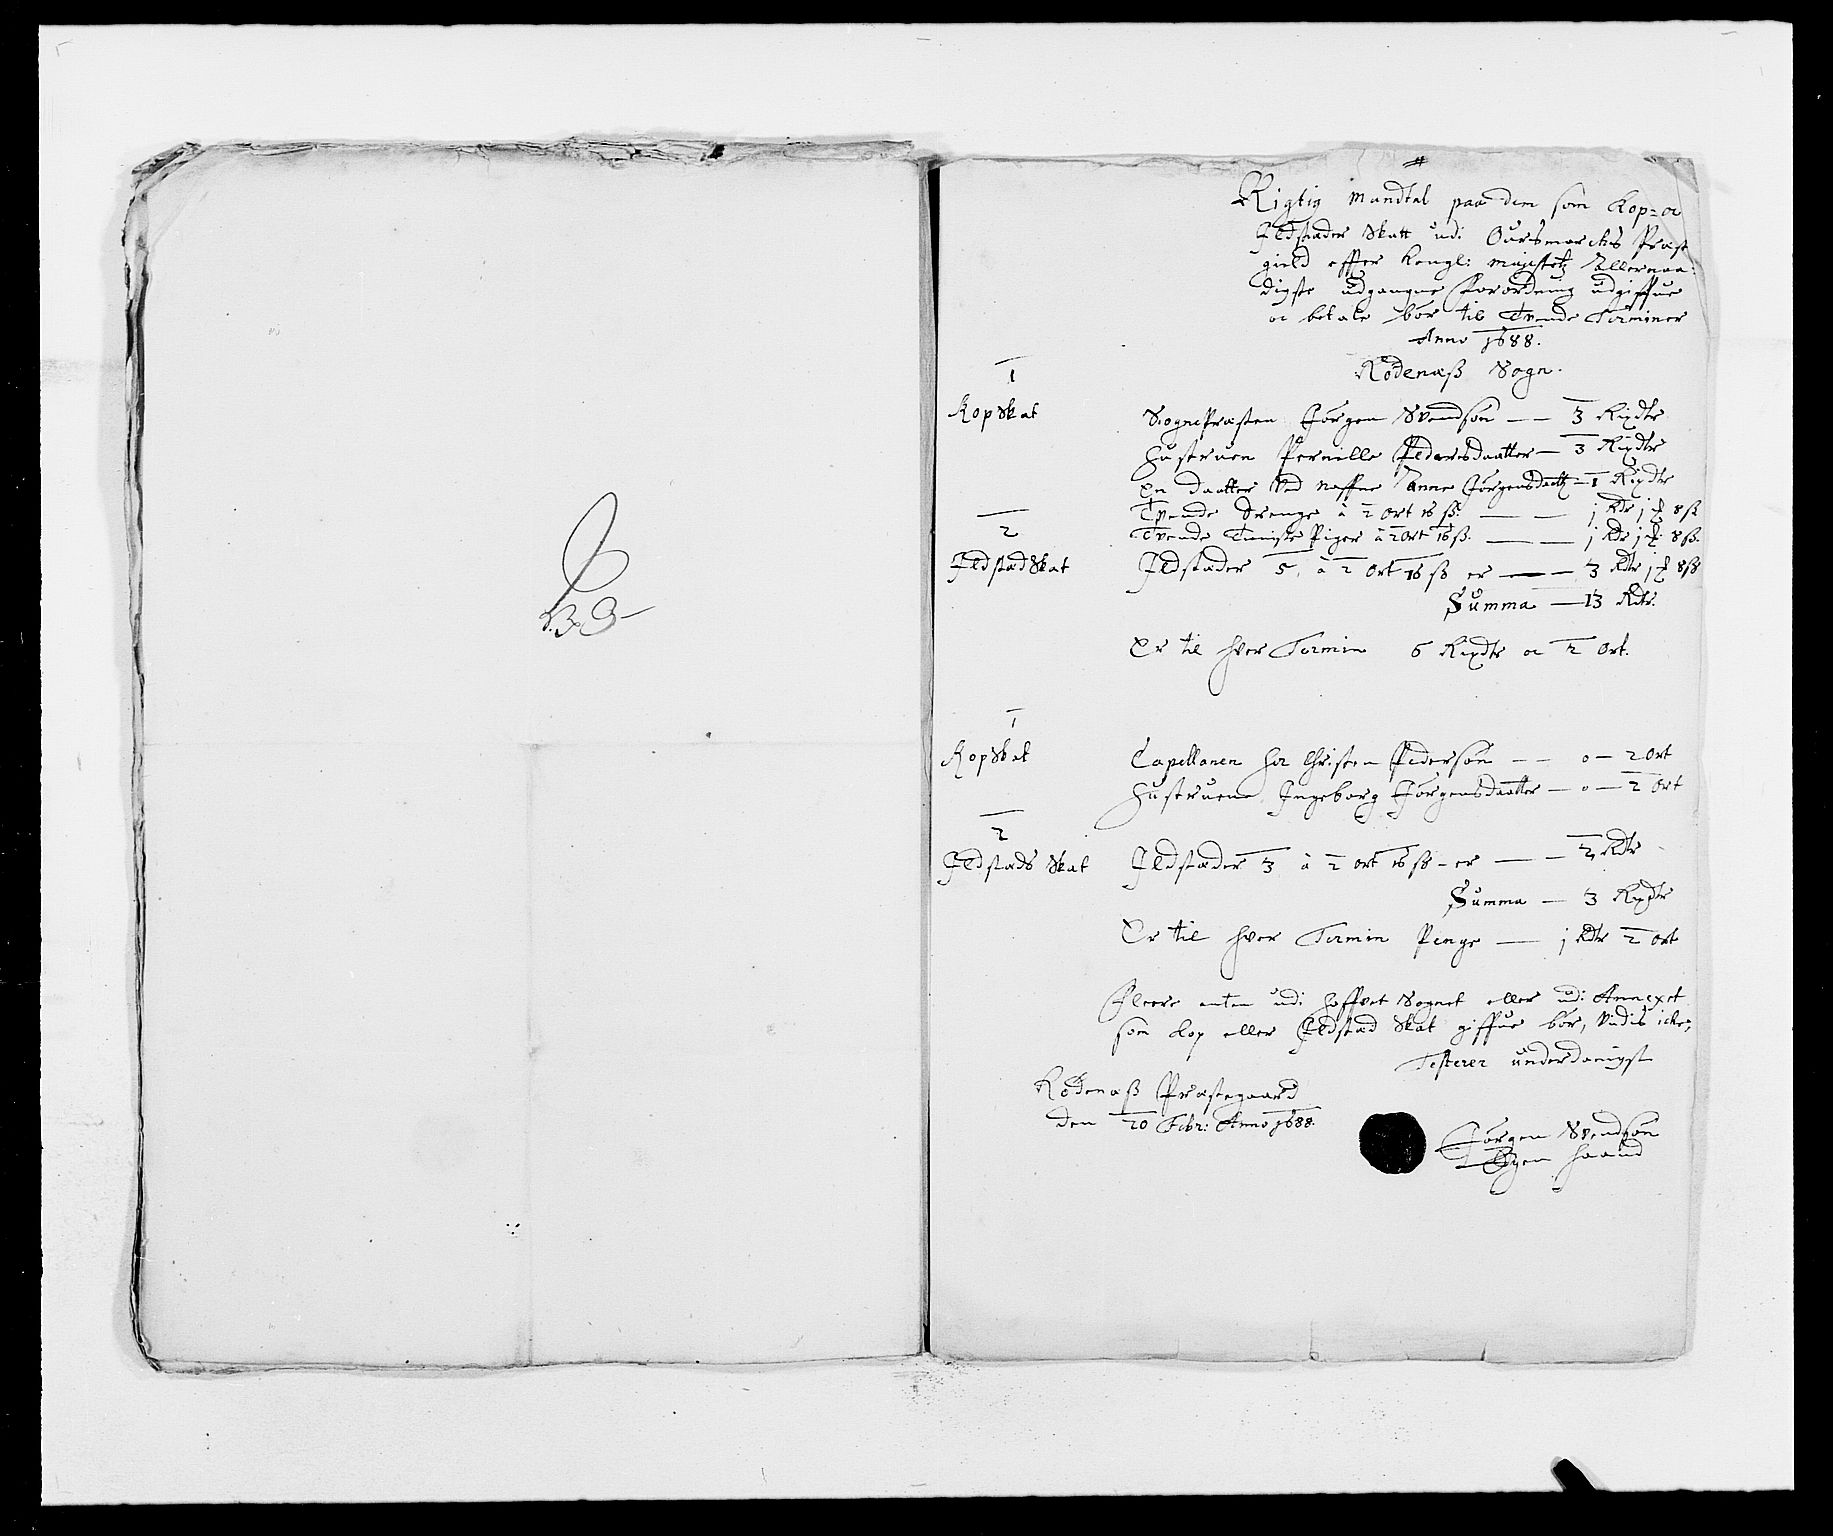 Rigtig Mandtal paa dem som Kop- oc
Ildstæder Skatt udi Oursmarckes Præst
gield effter Kongl: Mayestetz Allernaa-
digste udgangne Forordning udgiffue
oc betale bør til Tvende Terminer
Anno 1688.
Rødenæss Sogn.
1
Kopskat
SognePræsten Jørgen Svendsøn — — 3 Rixdlr
Hustruen Pernille Pedersdaatter — 3 Rixdlr
En daatter ved naffne Anne Jørgensdaatt — 1 Rixdlr
Tvende Drenge à 2 Ort 16 ß. — — 1 Rdr 1 ort 8 ß
Tvende Tieniste Piger à 2 Ort 16 ß. — — 1 Rdr 1 ort 8 ß.
2
IldstædSkat
Ildstæder 5, à 2 Ort 16 ß er — — 3 Rdr 1 ort 8 ß
Summa — 13 Rdr.
Er til hver Termin 6 Rixdlr oc 2 Ort.
1
Kopskat
Capellanen her Christen Pedersøn — — 0 — 2 Ort
Hustruene Ingeborg Jørgensdaatter — 0 — 2 Ort
2
Ildstæds Skat
Ildstæder 3 à 2 ort 16 ß - er — — 2 Rdr
Summa — 3 Rixdlr
Er til hver Termin Penge — 1 Rdr 2 ort
Fleere enten udi Hoffvet Sognet eller udi Annexet
som Kop eller Ildstæd Skat giffue bør, vides icke,
Testerer underdanigst
Rødenæss Præstegaard
den 20 Febr: Anno 1688.
Jørgen Svendsøn
Egen Haand